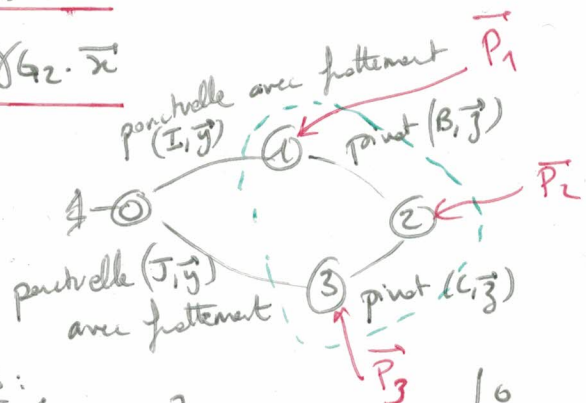 γG₂. x⃗
P⃗₁
ponctuelle avec frottement
(I, y⃗)
1
pivot (B, z⃗)
0
2
P⃗₂
ponctuelle (J, y⃗)
avec frottement
3
pivot (C, z⃗)
P⃗₃